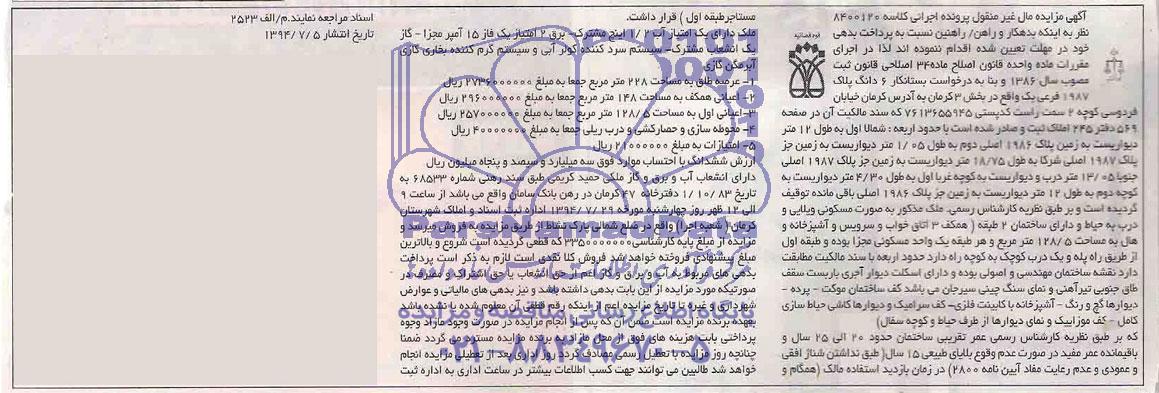 آگهی مزایده مال غیر منقول پرونده اجرائی کلاسه ۸۴۰۰۱۲۰
نظر به اینکه بدهکار و راهن/ راهنین نسبت به پرداخت بدهی
خود در مهلت تعیین شده اقدام ننموده اند لذا در اجرای
مقررات ماده واحده قانون اصلاح ماده۳۴ اصلاحی قانون ثبت
مصوب سال ۱۳۸۶ و بنا به درخواست بستانکار ۶ دانگ پلاک
۱۹۸۷ فرعی یک واقع در بخش ۳ کرمان به آدرس کرمان خیابان
فردوسی کوچه ۲ سمت راست کدپستی ۷۶۱۳۶۵۵۹۴۵ که سند مالکیت آن در صفحه
۵۶۹ دفتر ۲۴۵ املاک ثبت و صادر شده است با حدود اربعه : شمالا اول به طول ۱۲ متر
دیواریست به زمین پلاک ۱۹۸۶ اصلی دوم به طول ۱/۰۵ متر دیواریست به زمین جز
پلاک ۱۹۸۷ اصلی شرکا به طول ۱۸/۷۵ متر دیواریست به زمین جز پلاک ۱۹۸۷ اصلی
جنوبا ۱۳/۰۵ متر درب و دیواریست به کوچه غربا اول به طول ۴/۳۰ متر دیواریست به
کوچه دوم به طول ۱۲ متر دیواریست به زمین جز پلاک ۱۹۸۶ اصلی باقی مانده توقیف
گردیده است و بر طبق نظریه کارشناس رسمی. ملک مذکور به صورت مسکونی ویلایی و
درب به حیاط و دارای ساختمان ۲ طبقه ( همکف ۳ اتاق خواب و سرویس و آشپزخانه و
هال به مساحت ۱۲۸/۵ متر مربع و هر طبقه یک واحد مسکونی مجزا بوده و طبقه اول
از طریق راه پله و یک درب کوچک به کوچه راه دارد حدود اربعه با سند مالکیت مطابقت
دارد نقشه ساختمان مهندسی و اصولی بوده و دارای اسکلت دیوار آجری باربست سقف
طاق جنوبی تیرآهنی و نمای سنگ چینی سیرجان می باشد کف ساختمان موکت - پرده -
دیوارها گچ و رنگ - آشپزخانه با کابینت فلزی- کف سرامیک و دیوارها کاشی حیاط سازی
کامل - کف موزاییک و نمای دیوارها از طرف حیاط و کوچه سفال)
که بر طبق نظریه کارشناس رسمی عمر تقریبی ساختمان حدود ۲۰ الی ۲۵ سال و
باقیمانده عمر مفید در صورت عدم وقوع بلایای طبیعی ۱۵ سال( طبق نداشتن شناژ افقی
و عمودی و عدم رعایت مفاد آیین نامه ۲۸۰۰) در زمان بازدید استفاده مالک (همگام و
مستاجرطبقه اول ) قرار داشت.
ملک دارای یک امتیاز آب ۱/۲ اینچ مشترک- برق ۲ امتیاز یک فاز ۱۵ آمپر مجزا - گاز
یک انشعاب مشترک- سیستم سرد کننده کولر آبی و سیستم گرم کننده بخاری گازی
آبرمکن گازی
۱- عرصه طلق به مساحت ۲۲۸ متر مربع جمعا به مبلغ ۲۷۳۶۰۰۰۰۰۰ ریال
۲- اعیانی همکف به مساحت ۱۴۸ متر مربع جمعا به مبلغ ۲۹۶۰۰۰۰۰۰ ریال
۳- اعیانی اول به مساحت ۱۲۸/۵ متر مربع جمعا به مبلغ ۲۵۷۰۰۰۰۰۰ ریال
۴- محوطه سازی و حصارکشی و درب ریلی جمعا به مبلغ ۴۰۰۰۰۰۰۰ ریال
۵- امتیازات به مبلغ ۲۱۰۰۰۰۰۰ ریال
ارزش ششدانگ با احتساب موارد فوق سه میلیارد و سیصد و پنجاه میلیون ریال
دارای انشعاب آب و برق و گاز ملکی حمید کریمی طبق سند رهنی شماره ۶۸۵۳۳
تاریخ ۸۳/۱۰/۱ دفترخانه ۴۷ کرمان در رهن بانک سامان واقع می باشد از ساعت ۹
الی ۱۲ ظهر روز چهارشنبه مورخه ۱۳۹۴/۷/۲۹ اداره ثبت اسناد و املاک شهرستان
کرمان ( شعبه اجرا) واقع در ضلع شمالی پارک نشاط از طریق مزایده به فروش میرسد و
مزایده از مبلغ پایه کارشناسی ۳۳۵۰۰۰۰۰۰۰ که قطعی گردیده است شروع و بالاترین
مبلغ پیشنهادی فروخته خواهد شد فروش کلا نقدی است لازم به ذکر است پرداخت
بدهی های مربوط به آب و برق و گاز اعم از حق انشعاب یا حق اشتراک و مصرف در
صورتیکه مورد مزایده از این بابت بدهی داشته باشد و نیز بدهی های مالیاتی و عوارض
شهرداری و غیره تا تاریخ مزایده اعم از اینکه رقم قطعی آن معلوم شده یا نشده باشد
بعهده برنده مزایده است ضمن آن که پس از انجام مزایده در صورت وجود مازاد وجوه
پرداختی بابت هزینه های فوق از محل مازاد به برنده مزایده مسترد می گردد ضمنا
چنانچه روز مزایده با تعطیل رسمی مصادف گردد روز اداری بعد از تعطیلی مزایده انجام
خواهد شد طالبین می توانند جهت کسب اطلاعات بیشتر در ساعت اداری به اداره ثبت
اسناد مراجعه نمایند.م/الف ۲۵۲۳
تاریخ انتشار ۱۳۹۴/۷/۵
قوه قضائیه
ParsNamadData
پایگاه اطلاع رسانی مناقصه و مزایده
۰۲۱-۸۸۳۴۹۶۷۰-۵